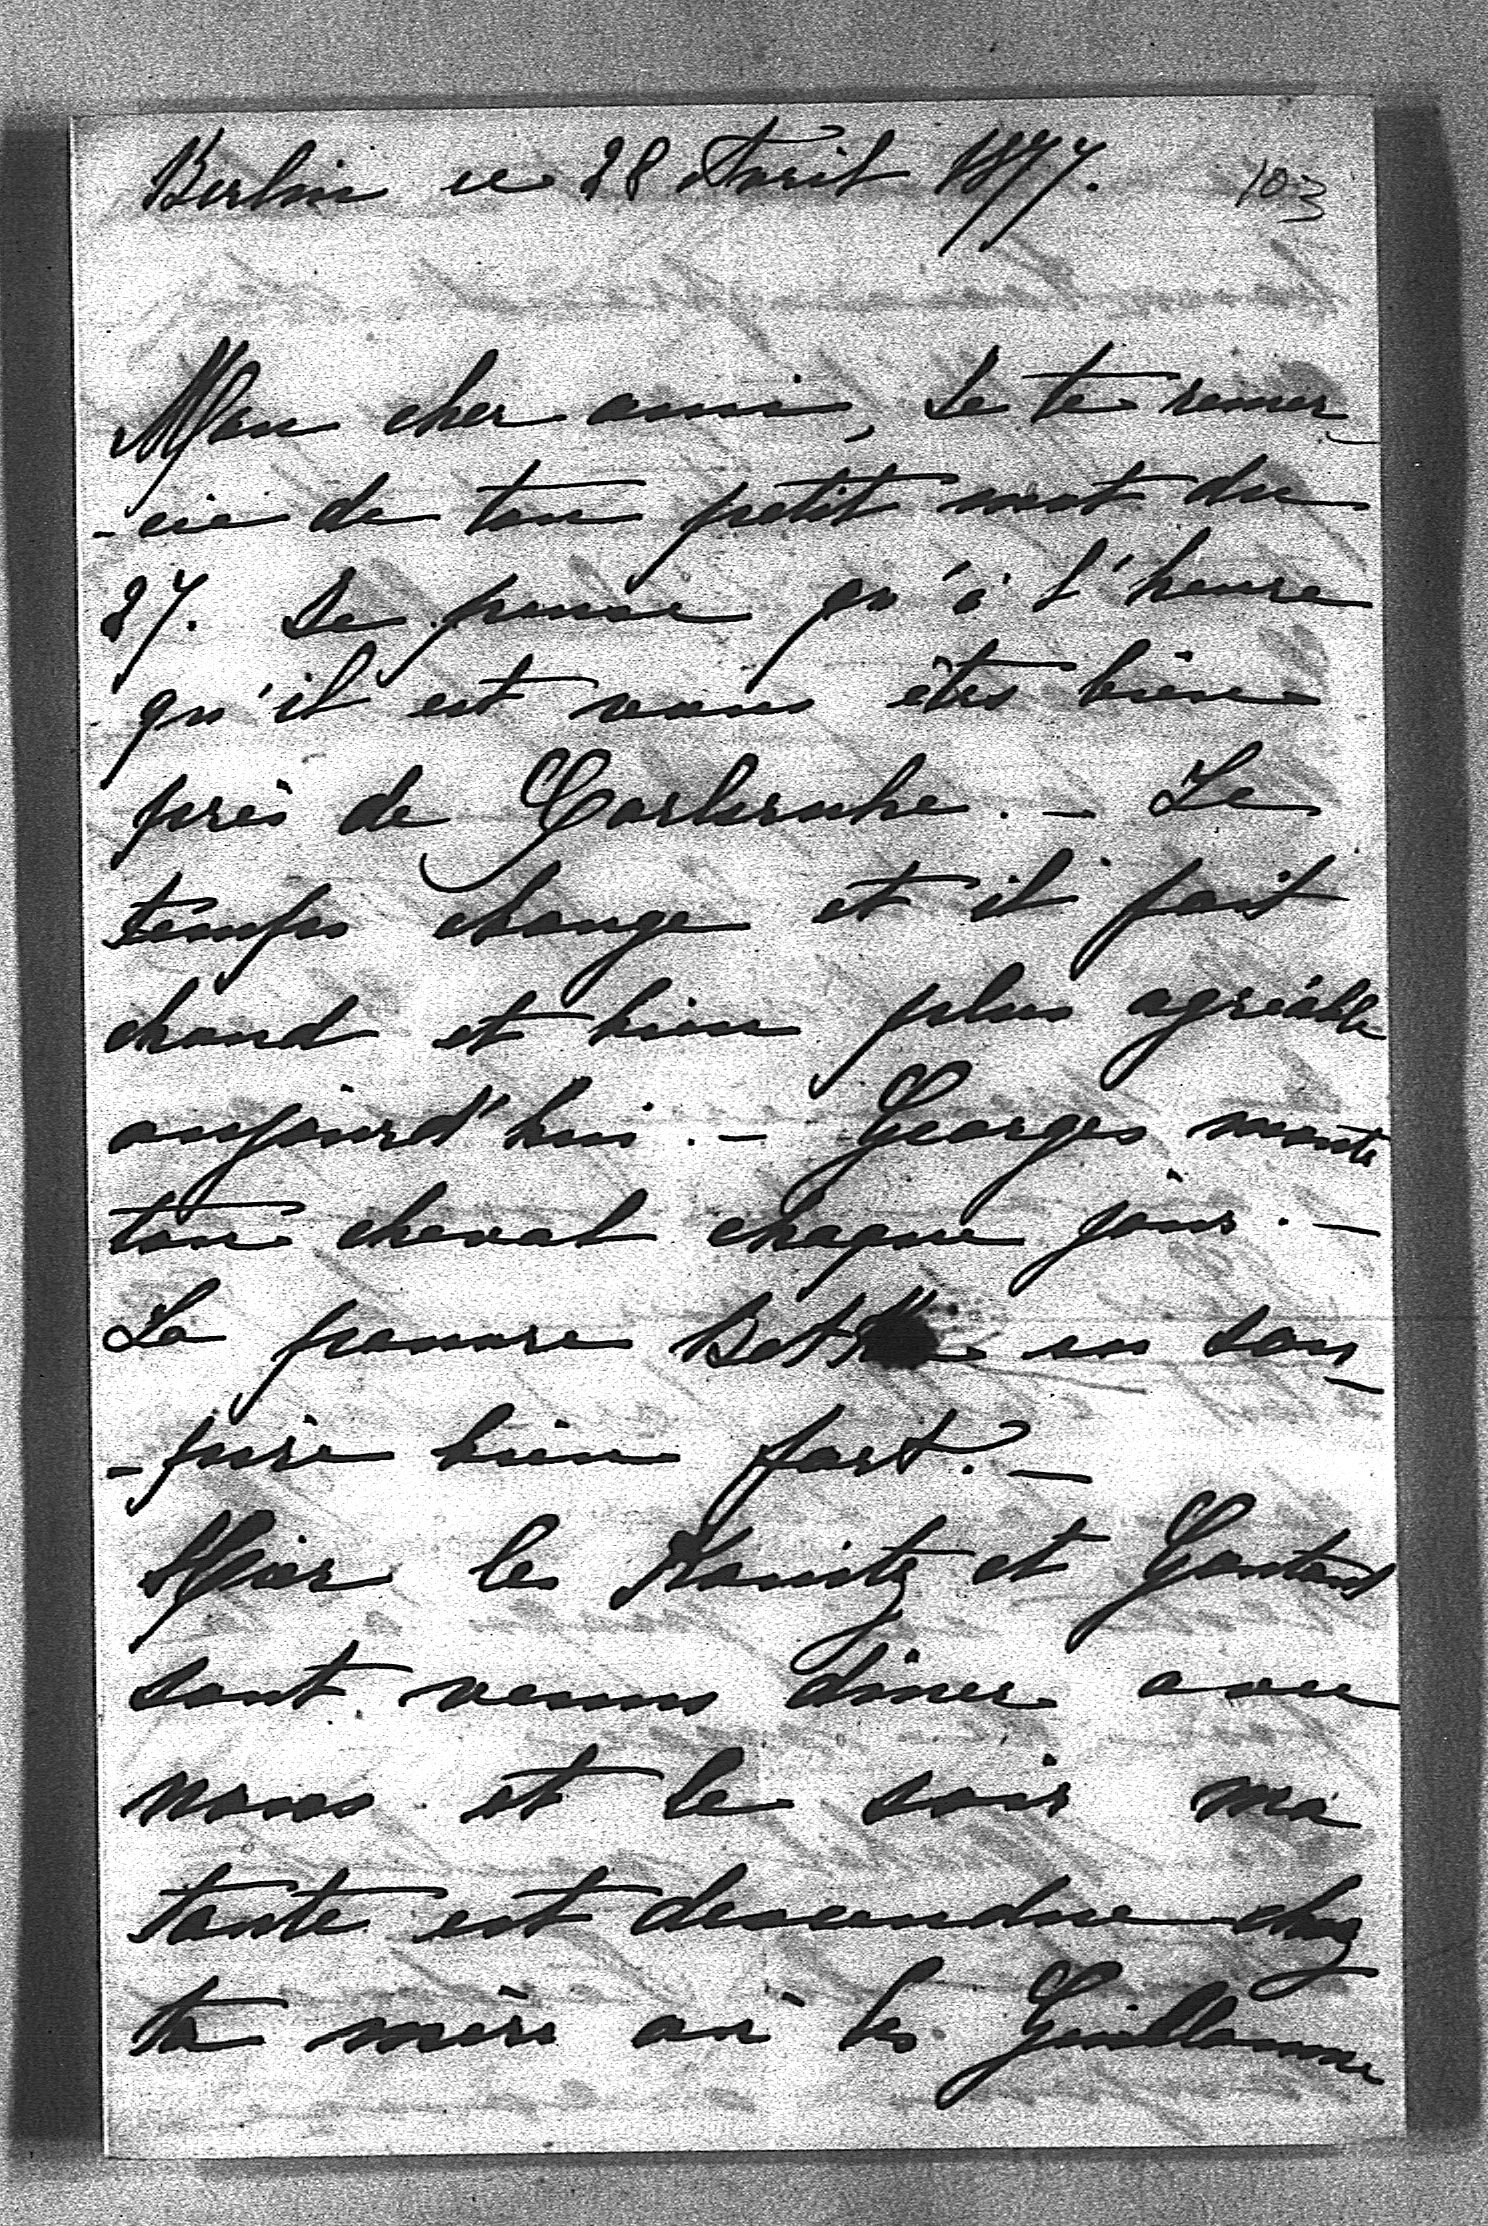 Berlin ce 28 Avril 1877. 103
Mon cher ami, Je te remer
-cie de ton petit mot du
27. Je pense qu'à l'heure
qu'il est vous êtes bien
près de Carlsruhe. – Le
temps change et il fait
chaud et bien plus agréable
aujourd'hui. – Georges monte
ton cheval chaque jour. –
La pauvre en sou
-pire bien fort. –
Hier les et Gontard
sont venus dîner avec
nous et le soir ma
tante est descendue chez
ta mère où les Guillaume